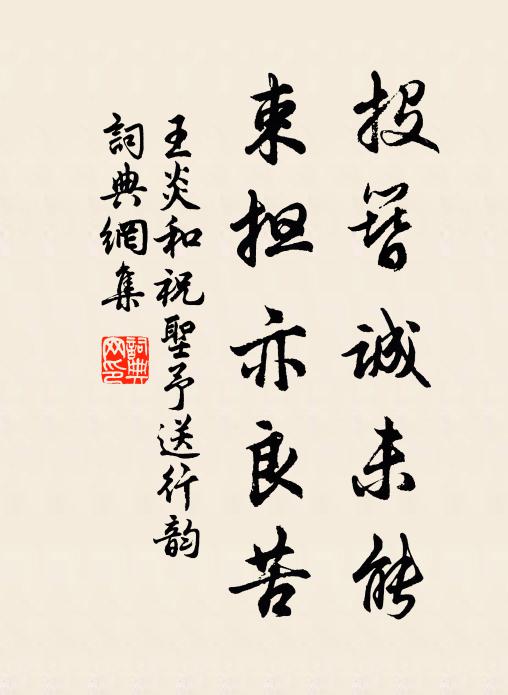 投簪诚未能
束担亦良苦
王炎和祝聖予送行韵
詞典網集
詞典网印